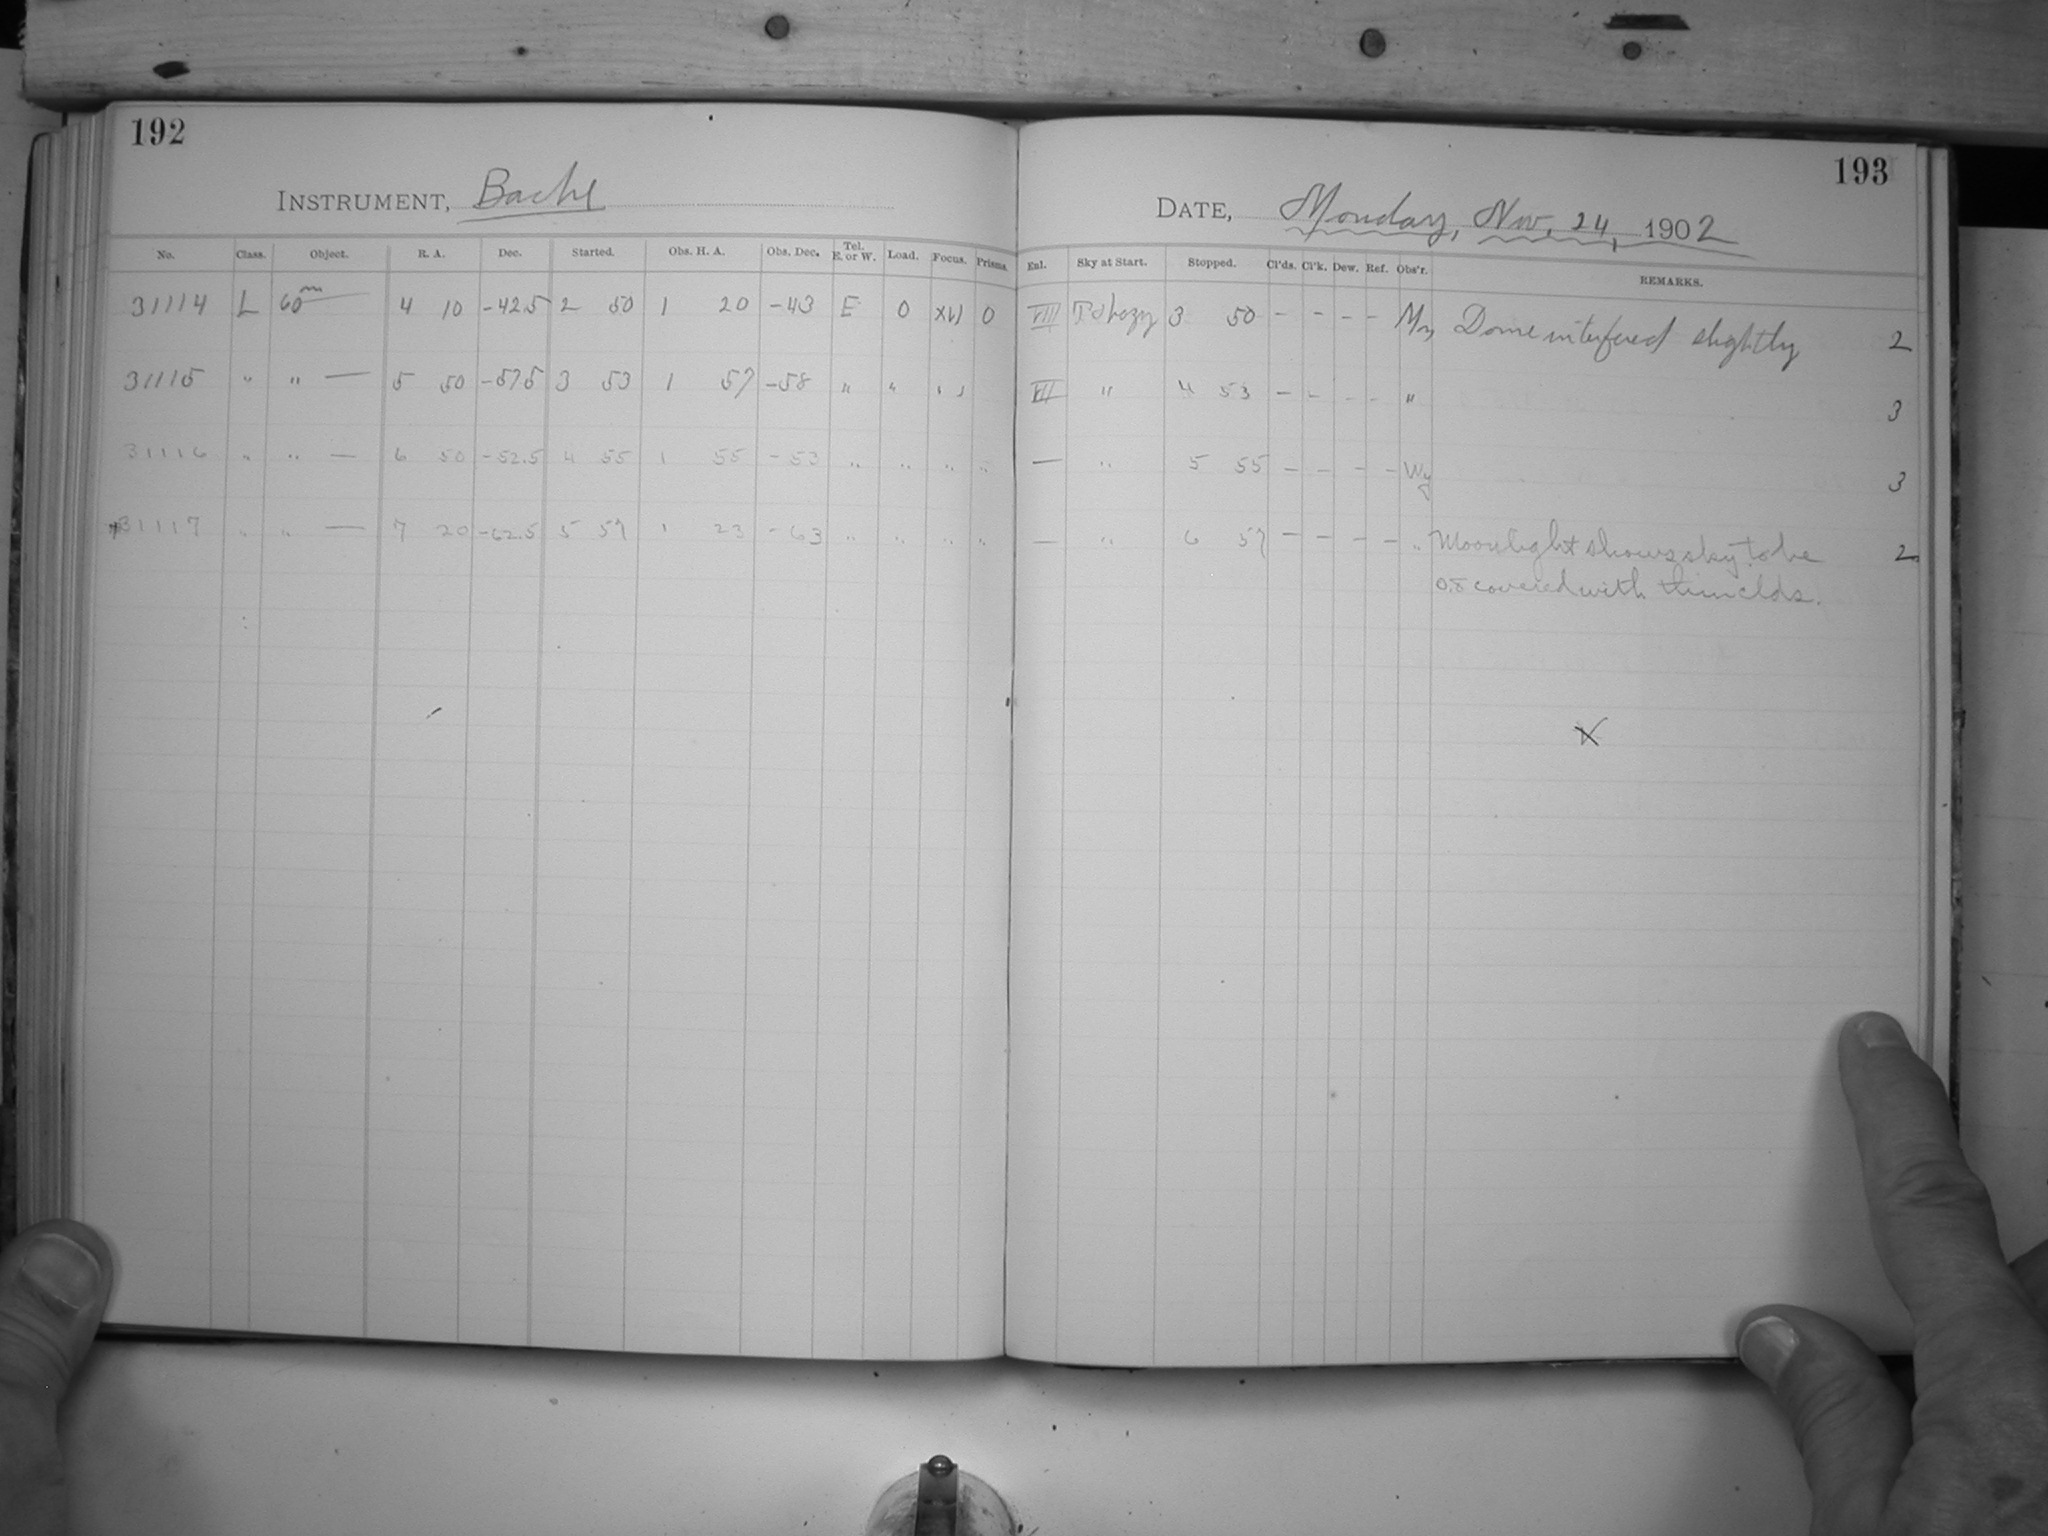 192
INSTRUMENT, Bache
No. Class. Object. R. A. Dec. Started. Obs. H. A. Obs. Dec. Tel. E. or W. Load. Focus. Prisms.
31114 L 60m — 4 10 -42.5 2 50 1 20 -43 E 0 0
31115 " " — 5 50 -57.5 3 53 1 57 -58 " " " "
31116 " " — 6 50 -52.5 4 55 1 55 -53 " " " "
31117 " " — 7 20 -62.5 5 57 1 23 -63 " " " "
193
DATE, Monday, Nov. 24, 1902
Enl. Sky at Start. Stopped. Cl'ds. Cl'k. Dew. Ref. Obs'r. REMARKS.
VIII hazy 3 50 - - - - Dome interfered slightly 2
VII " 4 53 - - - - " 3
— " 5 55 - - - - Wy 3
— " 6 57 - - - - " Moonlight shows sky to be 2
0.8 covered with thin clds.